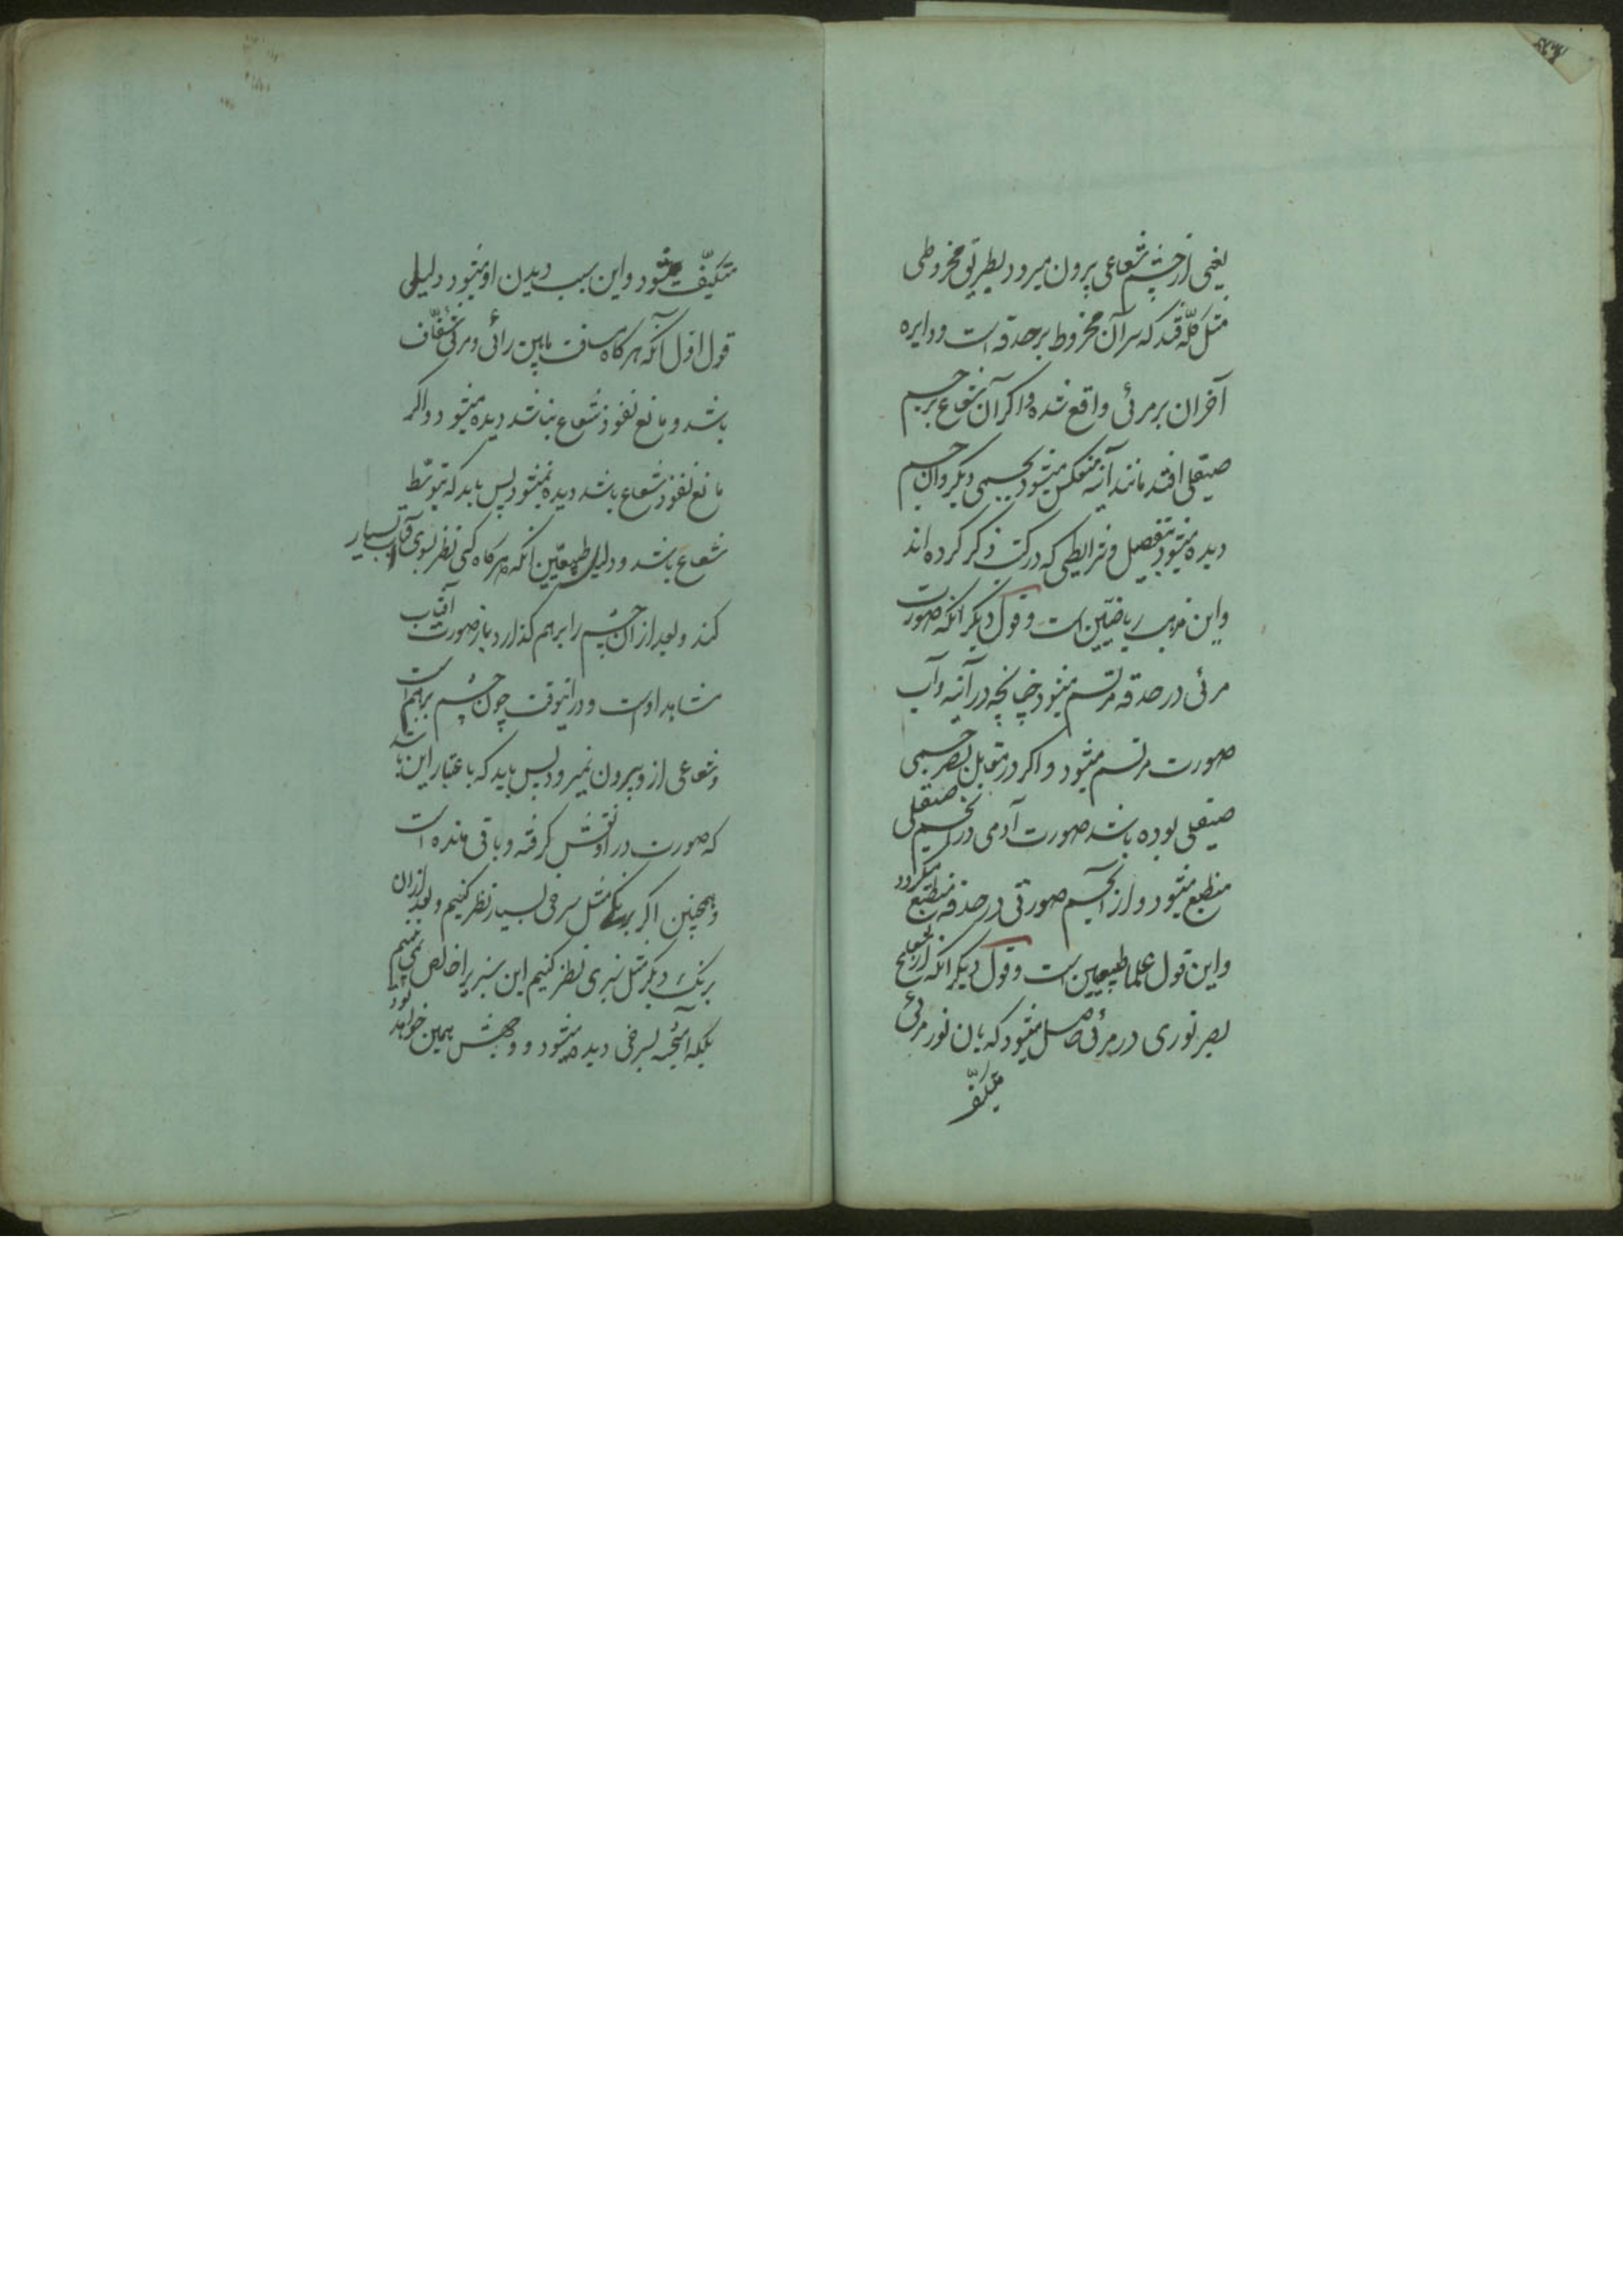 یعنی از چشم شعاعی بیرون میرود بطریق مخروطی
مثل کلّه قند که سر آن مخروط بر حدقه است و دایره
آخران بر مرئی واقع شده و اکر آن شعاع بر جسم
صیقلی افتد مانند آینه منعکس میشود بجسمی دیکر و آن جسم
دیده میشود بتفصیل و شرایطی که در کتب ذکر کرده اند
و این مذهب ریاضیین است و قول دیکر آنکه صورت
مرئی در حدقه مرتسم میشود چنانچه در آینه و آب
صورت مرتسم میشود و اکر در مقابل بصر جسمی
صیقلی بوده باشد صورت آدمی در آن جسم صیقلی
منطبع میشود و از آن جسم صورتی در حدقه منطبع میکردد
و این قول علما طبیعیین است و قول دیکر آنکه از
بصر نوری در مرئی حاصل میشود که بان نور مرئی
متکیّف
متکیّف میشود و این سبب دیدن او میشود دلیل
قول اوّل آنکه هرکاه مسافت مابین رائی و مرئی شفّاف
باشد و مانع نفوذ شعاع نباشد دیده میشود و اکر
مانع نفوذ شعاع باشد دیده نمیشود پس باید که بتوسّط
شعاع باشد و دلیل طبیعیّین آنکه هرکاه کسی نظر بسوی آفتاب بسیار
کند و بعد از آن چشم را برهم کذارد باز صورت آفتاب
مشاهد اوست و در اینوقت چون چشم برهم است
و شعاعی از و بیرون نمیرود پس باید که باعتبار این باشد
که صورت در او نقش کرفته و باقی مانده است
و همچنین اکر برنکی مثل سرخی بسیار نظر کنیم و بعد از آن
برنک دیکر مثل سبزی نظر کنیم این سبز را خالص نمی بینیم
بلکه آمیخته بسرخی دیده میشود و وجهش همین خواهد بود